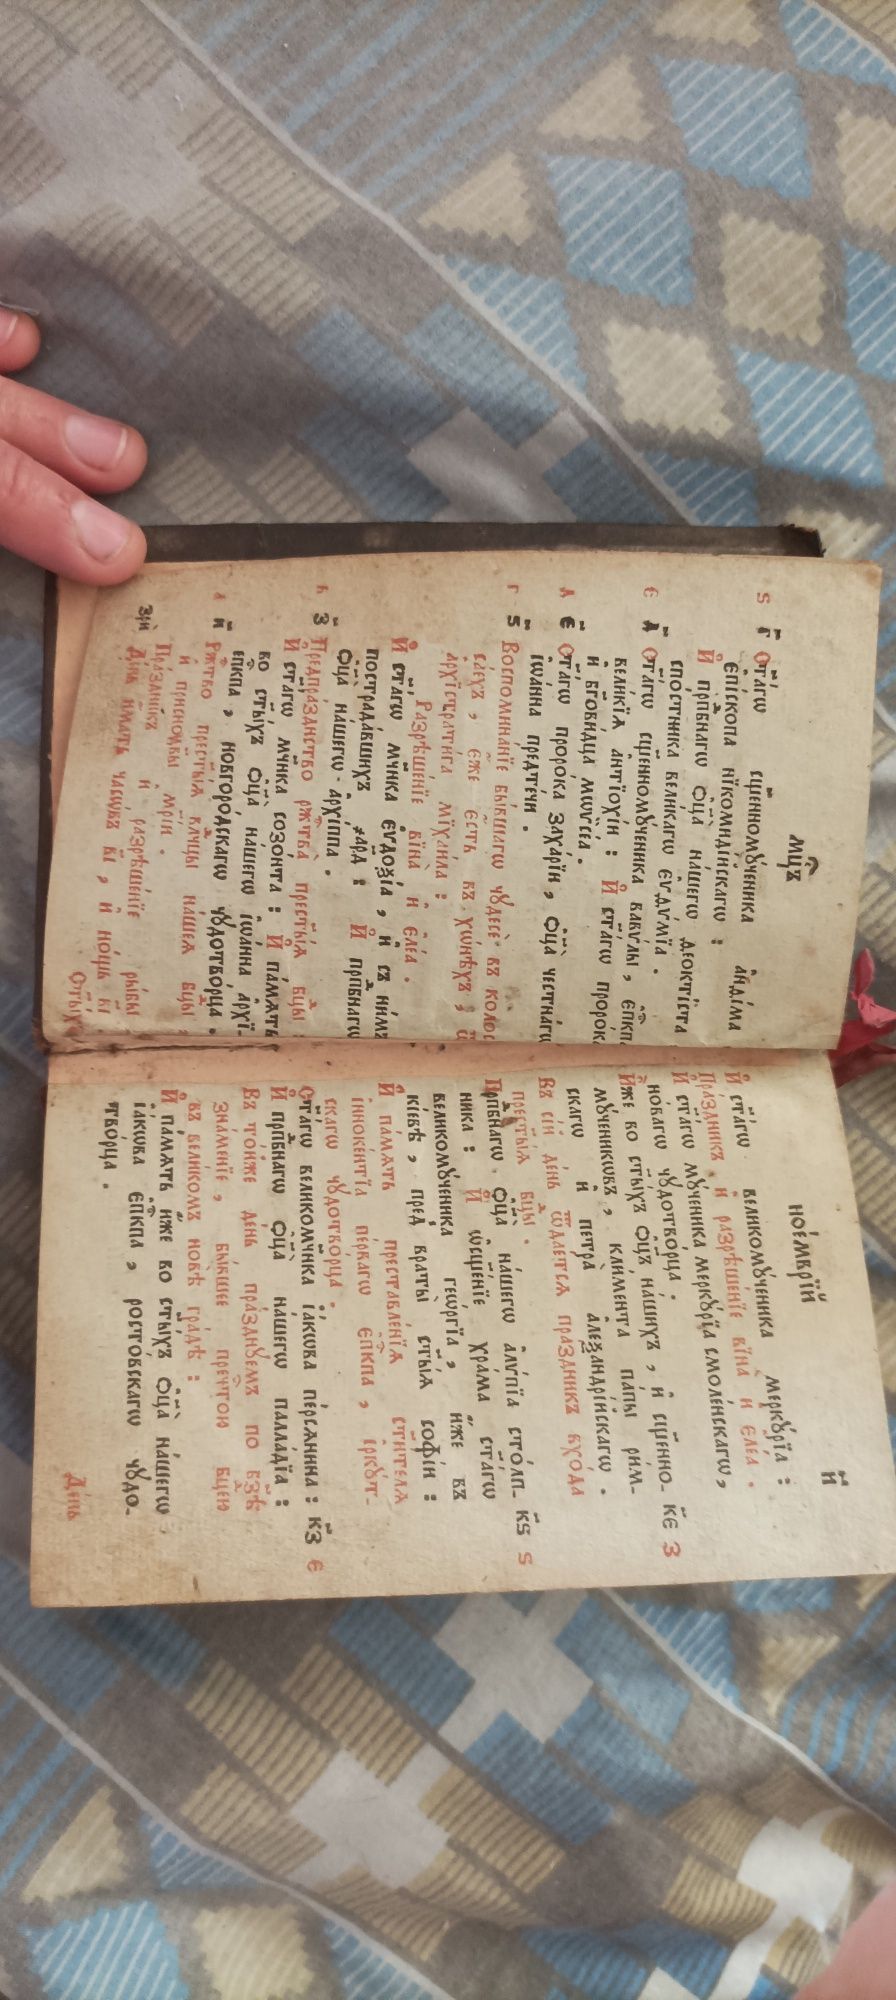 мцъ
ѕ г҃ Ст҃а́гѡ сщ҃енномꙋ́ченика а҆нѳі́ма
є҆пі́скопа нїкомиді́йскагѡ :
И҆ прпⷣбнагѡ ѻ҆ц҃а̀ на́шегѡ ѳеокті́ста
спо́стника вели́кагѡ є҆ѵѳѵ́мїа .
є д҃ Ст҃а́гѡ сщ҃енномꙋ́ченика вавѵ́лы, є҆пⷭ҇кпа
вели́кїѧ а҆нтїохі́и : И҆ ст҃а́гѡ проро́ка
и҆ бг҃ови́дца мѡѷсе́а .
д є҃ Ст҃а́гѡ проро́ка заха́рїи, ѻ҆ц҃а̀ честна́гѡ
і҆ѡа́нна предте́чи .
г ѕ҃ Воспомина́нїе бы́вшагѡ чꙋдесѐ въ колос
са́ехъ, є҆́же є҆́сть въ хѡ́нѣхъ, ѿ
а҆рхїстрати́га мїхаи́ла :
Разрѣше́нїе вїна̀ и҆ є҆ле́а .
И҆ ст҃а́гѡ мч҃нка є҆ѵдоѯі́а, и҆ съ ни́мъ
пострада́вшихъ ҂а҃рд : И҆ прпⷣбнагѡ
ѻ҆ц҃а̀ на́шегѡ а҆рхі́ппа .
в з҃ Предпра́зднство ржⷭ҇тва̀ прест҃ы́ѧ бцⷣы :
И҆ ст҃а́гѡ мч҃нка созо́нта : И҆ па́мѧть
во ст҃ы́хъ ѻ҆ц҃а̀ на́шегѡ і҆ѡа́нна а҆рхї-
є҆пⷭ҇кпа, новгоро́дскагѡ чꙋдотво́рца .
а и҃ Ржⷭ҇тво̀ прест҃ы́ѧ влⷣчцы на́шеѧ бцⷣы
и҆ приснодв҃ы мр҃і́и .
Пра́здникъ и҆ разрѣше́нїе ры́бы
Зрѝ Де́нь и҆́мать часѡ́въ в҃і, и҆ но́щь в҃і
Ст҃ы́хъ
ное́мврїй и҃
И҆ ст҃а́гѡ великомꙋ́ченика меркꙋ́рїа :
Пра́здникъ, и҆ разрѣше́нїе вїна̀ и҆ є҆ле́а .
И҆ ст҃а́гѡ мꙋ́ченика меркꙋ́рїа смоле́нскагѡ,
но́вагѡ чꙋдотво́рца .
И҆̀же во ст҃ы́хъ ѻ҆ц҃ъ на́шихъ, и҆ сщ҃енно- к҃є з
мꙋ́ченикѡвъ, кли́мента па́пы ри́м-
скагѡ и҆ петра̀ а҆леѯандрі́йскагѡ .
Въ се́й де́нь ѿдае́тсѧ пра́здникъ вхо́да
прест҃ы́ѧ бцⷣы .
Прпⷣбнагѡ ѻ҆ц҃а̀ на́шегѡ а҆лѵ́пїа сто́лп- к҃ѕ ѕ
ника : И҆ ѡ҆сщ҃е́нїе хра́ма ст҃а́гѡ
великомꙋ́ченика геѡ́ргїа, и҆́же въ
кі́евѣ, пред̾ враты̀ ст҃ы́ѧ софі́и :
И҆ па́мѧть преставле́нїѧ ст҃и́телѧ
і҆нноке́нтїа пе́рвагѡ є҆пⷭ҇кпа, і҆ркꙋ́т-
скагѡ чꙋдотво́рца .
Ст҃а́гѡ великомч҃нка і҆а́кѡва пе́рсѧнина : к҃з є
И҆ прпⷣбнагѡ ѻ҆ц҃а̀ на́шегѡ палла́дїа :
Въ то́йже де́нь, пра́зднꙋемъ по вз҃ѣ
зна́менїе, бы́вшее пречⷭ҇тою бцⷣею
въ вели́комъ но́вѣ гра́дѣ :
И҆ па́мѧть и҆́же во ст҃ы́хъ ѻ҆ц҃а̀ на́шегѡ
і҆а́кѡва є҆пⷭ҇кпа, росто́вскагѡ чꙋдо-
тво́рца .
Де́нь